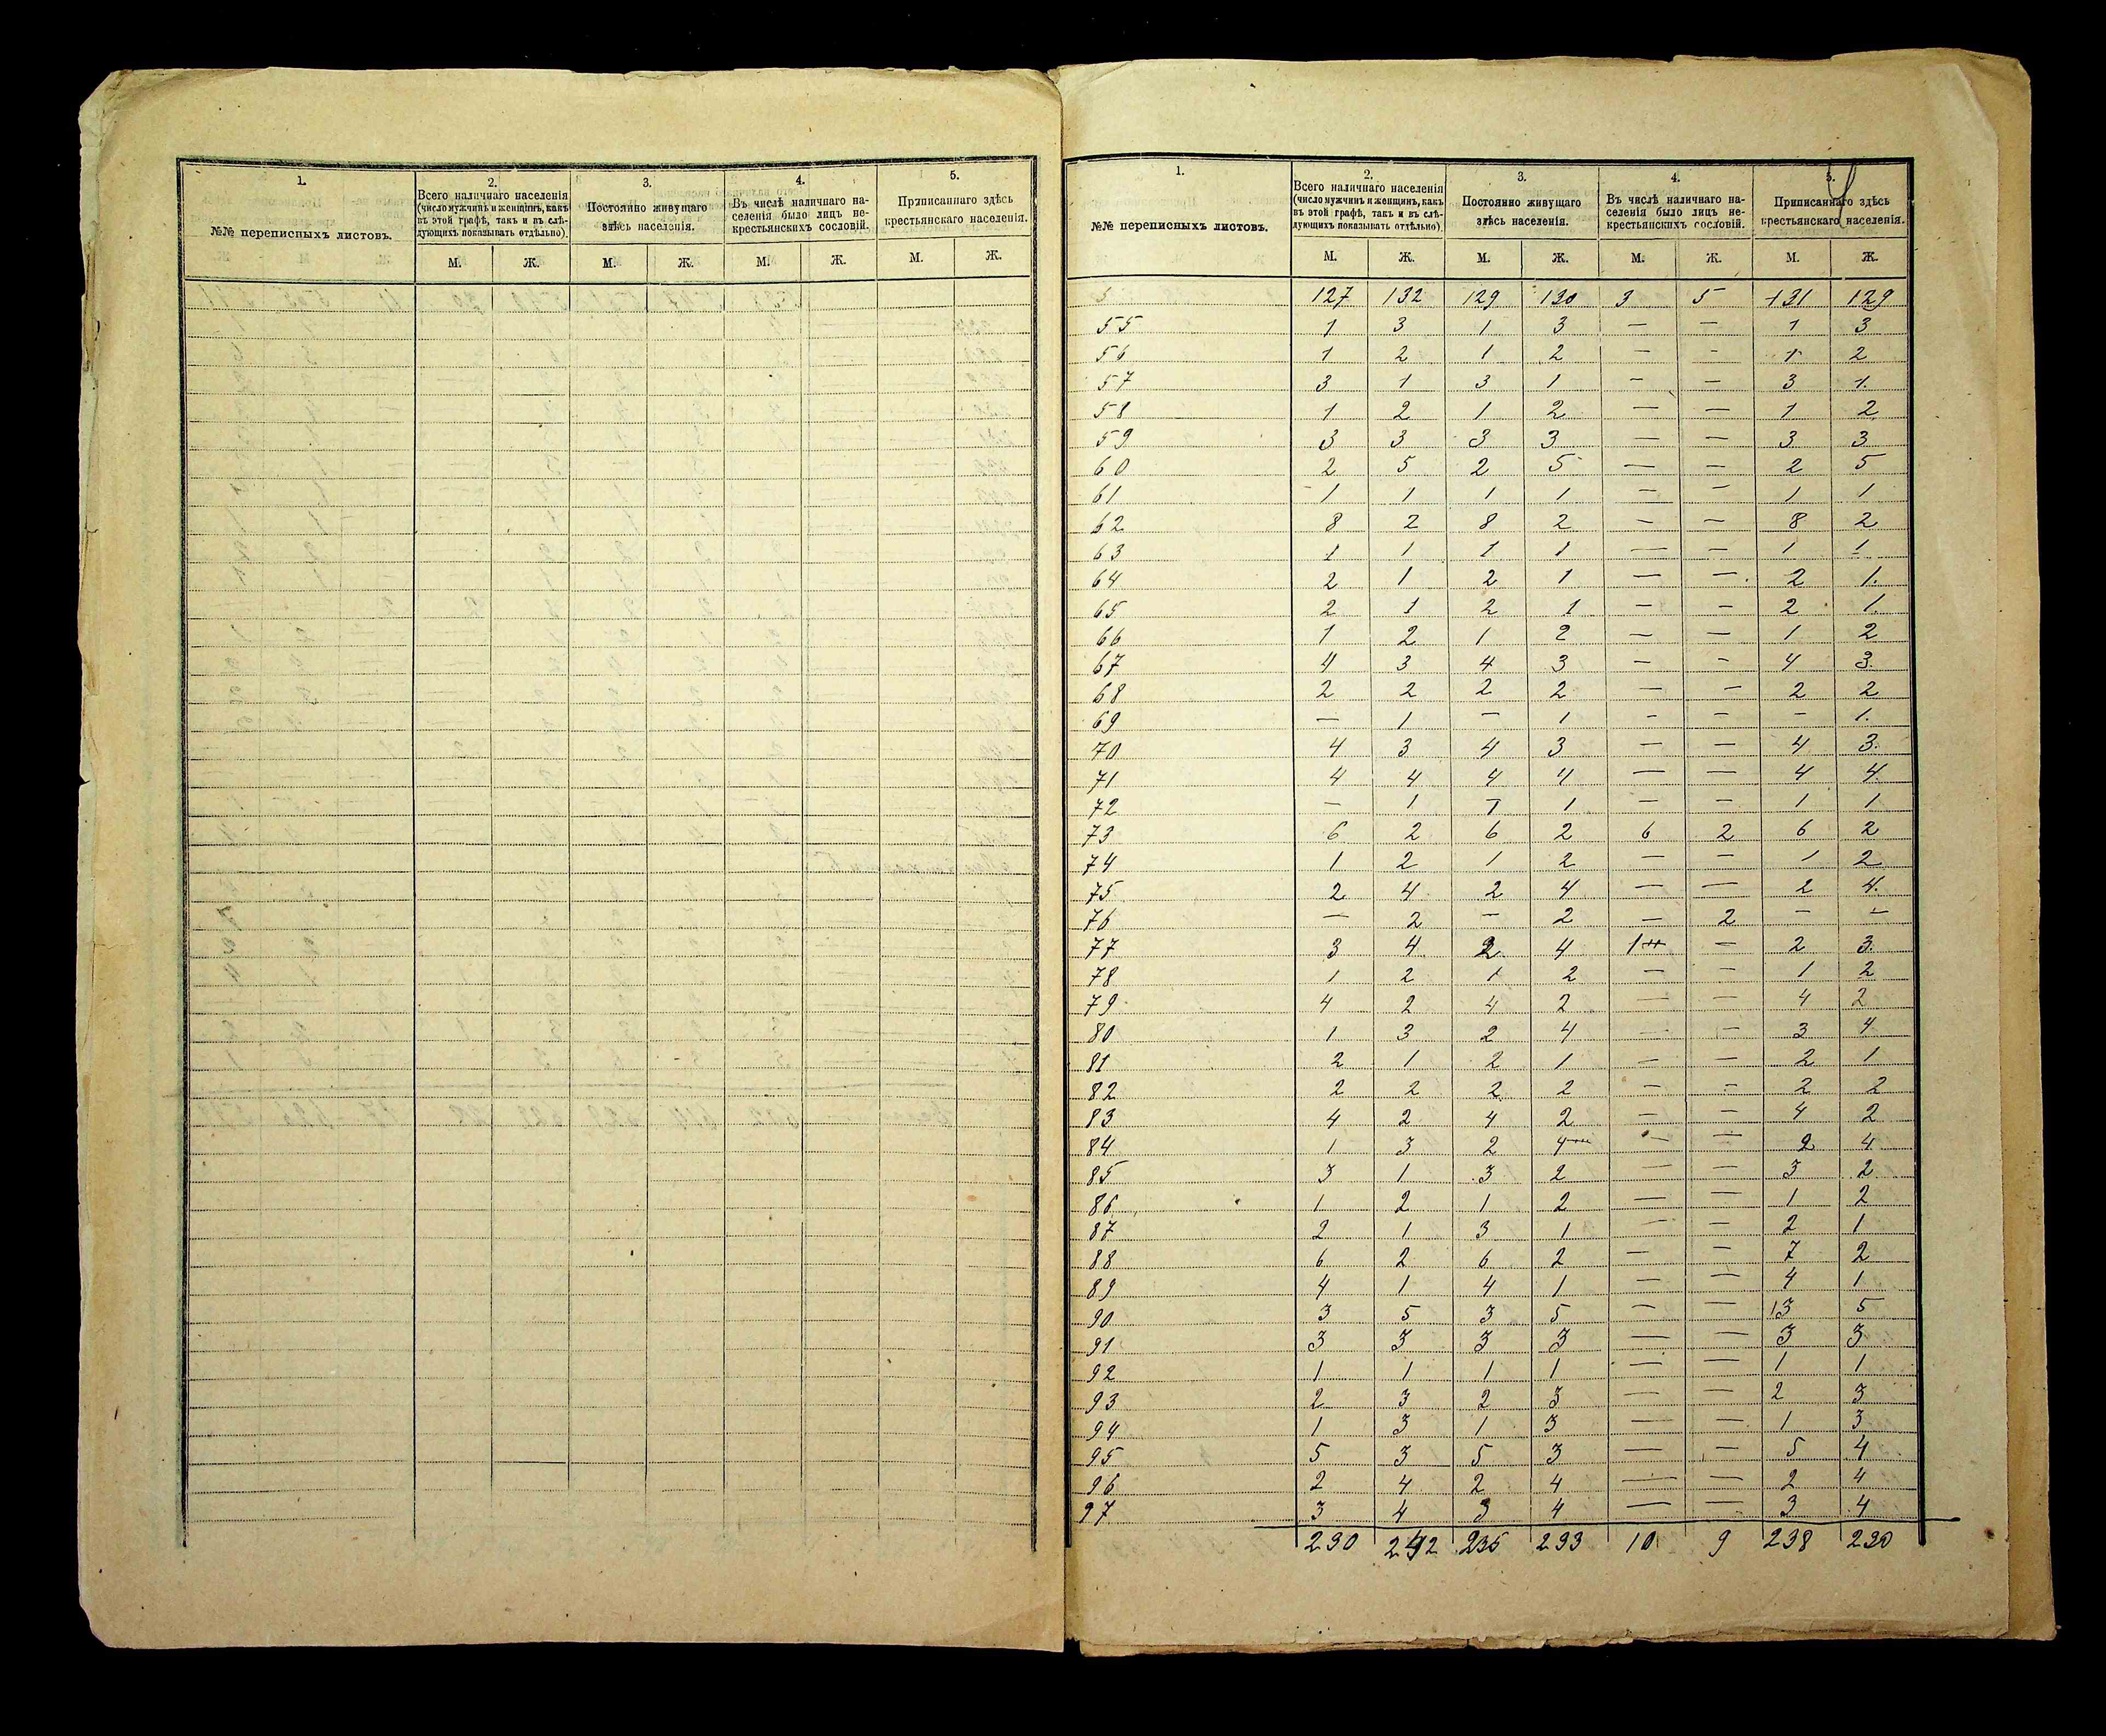 1.
№№ переписныхъ листовъ.
2.
Всего наличнаго населенія
(число мужчинъ и женщинъ, какъ
въ этой графѣ, такъ и въ слѣ-
дующихъ показывать отдѣльно).
3.
Постоянно живущаго
здѣсь населенія.
4.
Въ числѣ наличнаго на-
селенія было лицъ не-
крестьянскихъ сословій.
5.
Приписаннаго здѣсь
крестьянскаго населенія.
М. Ж. М. Ж. М. Ж. М. Ж.
1.
№№ переписныхъ листовъ.
2.
Всего наличнаго населенія
(число мужчинъ и женщинъ, какъ
въ этой графѣ, такъ и въ слѣ-
дующихъ показывать отдѣльно).
3.
Постоянно живущаго
здѣсь населенія.
4.
Въ числѣ наличнаго на-
селенія было лицъ не-
крестьянскихъ сословій.
5.
Приписаннаго здѣсь
крестьянскаго населенія.
М. Ж. М. Ж. М. Ж. М. Ж.
127 132 129 130 3 5 131 129
55 1 3 1 3 — — 1 3
56 1 2 1 2 — - 1 2
57 3 1 3 1 - — 3 1.
58 1 2 1 2 — — 1 2
59 3 3 3 3 — — 3 3
60 2 5 2 5 — — 2 5
61 1 1 1 1 — - 1 1
62 8 2 8 2 — — 8 2
63 1 1 1 1 — — 1 1
64 2 1 2 1 — — 2 1.
65 2 1 2 1 — — 2 1.
66 1 2 1 2 — — 1 2
67 4 3 4 3 — - 4 3.
68 2 2 2 2 — — 2 2
69 — 1 — 1 - — - 1.
70 4 3 4 3 — — 4 3.
71 4 4 4 4 — — 4 4.
72 — 1 1 1 — — 1 1
73 6 2 6 2 6 2 6 2
74 1 2 1 2 — — 1 2
75 2 4 2 4 — — 2 4.
76 — 2 — 2 — 2 — —
77 3 4 2 4 1 — 2 3.
78 1 2 1 2 — - 1 2
79 4 2 4 2 — — 4 2
80 1 3 2 4 — — 3 4
81 2 1 2 1 — — 2 1
82 2 2 2 2 — — 2 2
83 4 2 4 2 — — 4 2
84 1 3 2 4 — — 2 4
85 3 1 3 2 — — 3 2
86 1 2 1 2 — — 1 2
87 2 1 3 1 — — 2 1
88 6 2 6 2 — — 7 2
89 4 1 4 1 — — 4 1
90 3 5 3 5 — — 3 5
91 3 3 3 3 — — 3 3
92 1 1 1 1 — — 1 1
93 2 3 2 3 — — 2 3
94 1 3 1 3 — — 1 3
95 5 3 5 3 — — 5 4
96 2 4 2 4 — — 2 4
97 3 4 3 4 — — 3 4
230 232 235 233 10 9 238 230